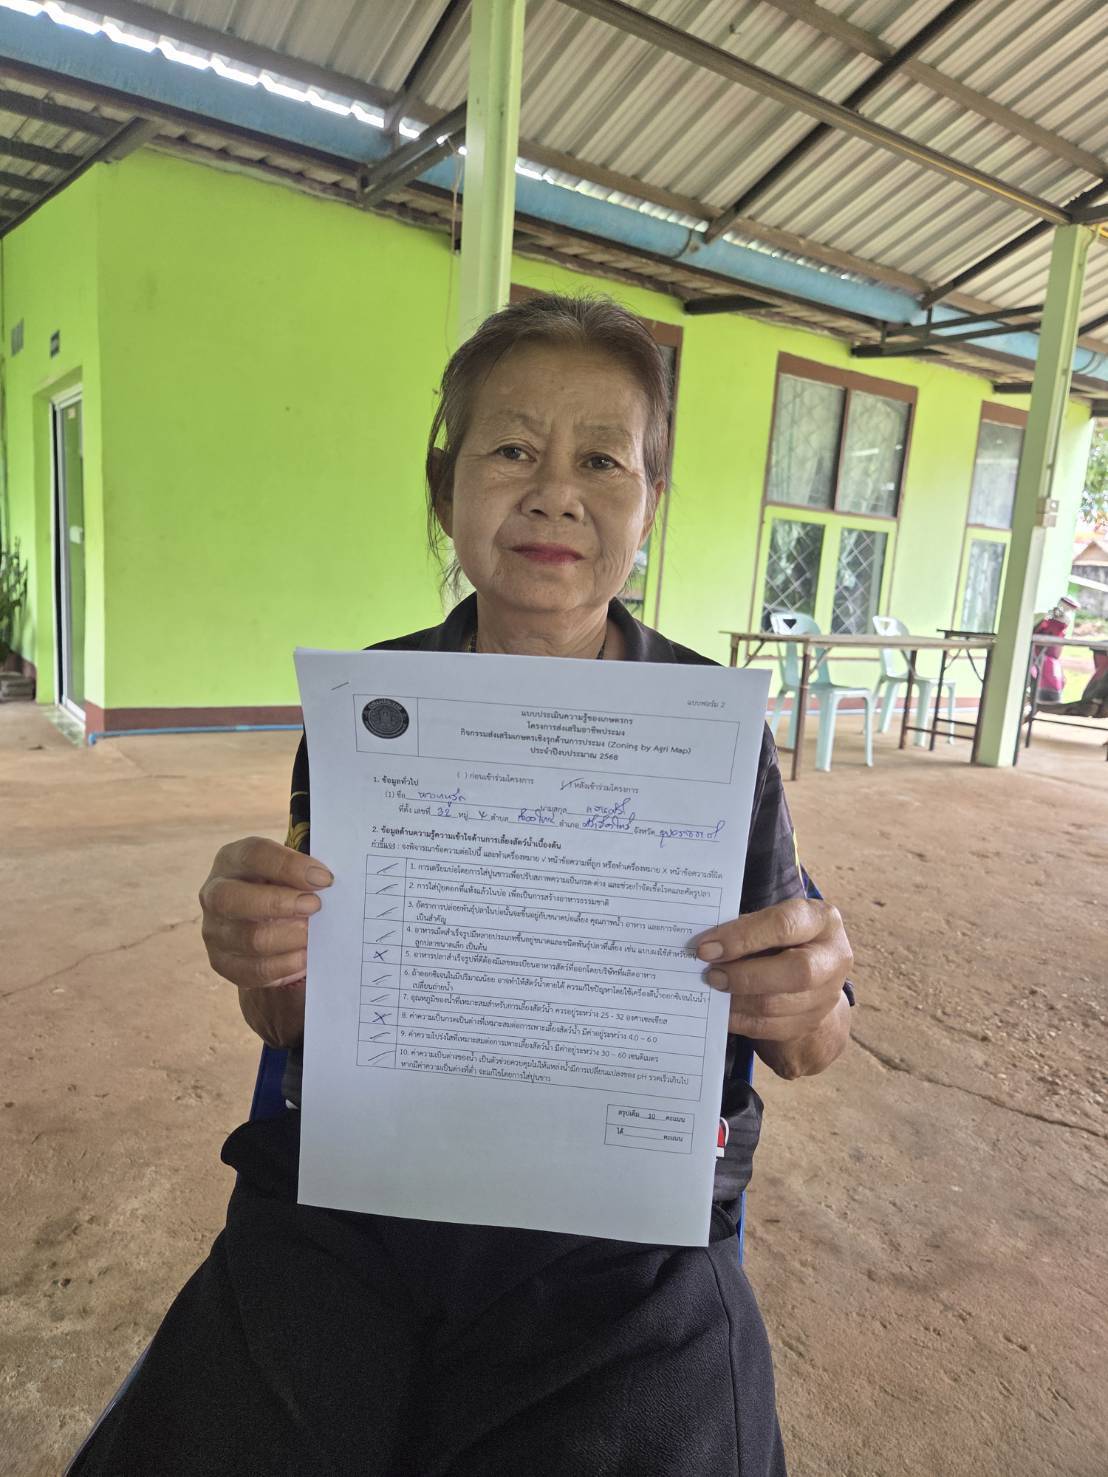 แบบฟอร์ม 2
แบบประเมินความรู้ของเกษตรกร
โครงการส่งเสริมอาชีพประมง
กิจกรรมส่งเสริมเกษตรเชิงรุกด้านการประมง (Zoning by Agri Map)
ประจำปีงบประมาณ 2568
( ) ก่อนเข้าร่วมโครงการ (✓) หลังเข้าร่วมโครงการ
1. ข้อมูลทั่วไป
(1) ชื่อ นามสกุล
ที่ตั้ง เลขที่ 32 หมู่ ตำบล อำเภอ จังหวัด
2. ข้อมูลด้านความรู้ความเข้าใจด้านการเลี้ยงสัตว์น้ำเบื้องต้น
คำชี้แจง : จงพิจารณาข้อความต่อไปนี้ และทำเครื่องหมาย √ หน้าข้อความที่ถูก หรือทำเครื่องหมาย X หน้าข้อความที่ผิด
1. การเตรียมบ่อโดยการใส่ปูนขาวเพื่อปรับสภาพความเป็นกรด-ด่าง และช่วยกำจัดเชื้อโรคและศัตรูปลา
2. การใส่ปุ๋ยคอกที่แห้งแล้วในบ่อ เพื่อเป็นการสร้างอาหารธรรมชาติ
3. อัตราการปล่อยพันธุ์ปลาในบ่อนั้นจะขึ้นอยู่กับขนาดบ่อเลี้ยง คุณภาพน้ำ อาหาร และการจัดการ
เป็นสำคัญ
4. อาหารเม็ดสำเร็จรูปมีหลายประเภทขึ้นอยู่ขนาดและชนิดพันธุ์ปลาที่เลี้ยง เช่น แบบผงใช้สำหรับ
ลูกปลาขนาดเล็ก เป็นต้น
X 5. อาหารปลาสำเร็จรูปที่ดีต้องมีเลขทะเบียนอาหารสัตว์ที่ออกโดยบริษัทที่ผลิตอาหาร
6. ถ้าออกซิเจนในมีปริมาณน้อย อาจทำให้สัตว์น้ำตายได้ ควรแก้ไขปัญหาโดยใช้เครื่องตีน้ำออกซิเจนในน้ำ
เปลี่ยนถ่ายน้ำ
7. อุณหภูมิของน้ำที่เหมาะสมสำหรับการเลี้ยงสัตว์น้ำ ควรอยู่ระหว่าง 25 - 32 องศาเซลเซียส
X 8. ค่าความเป็นกรดเป็นด่างที่เหมาะสมต่อการเพาะเลี้ยงสัตว์น้ำ มีค่าอยู่ระหว่าง 4.0 – 6.0
9. ค่าความโปร่งใสที่เหมาะสมต่อการเพาะเลี้ยงสัตว์น้ำ มีค่าอยู่ระหว่าง 30 – 60 เซนติเมตร
10. ค่าความเป็นด่างของน้ำ เป็นตัวช่วยควบคุมไม่ให้แหล่งน้ำมีการเปลี่ยนแปลงของ pH รวดเร็วเกินไป
หากมีค่าความเป็นด่างที่ต่ำ จะแก้ไขโดยการใส่ปูนขาว
สรุปเต็ม 10 คะแนน
ได้ คะแนน